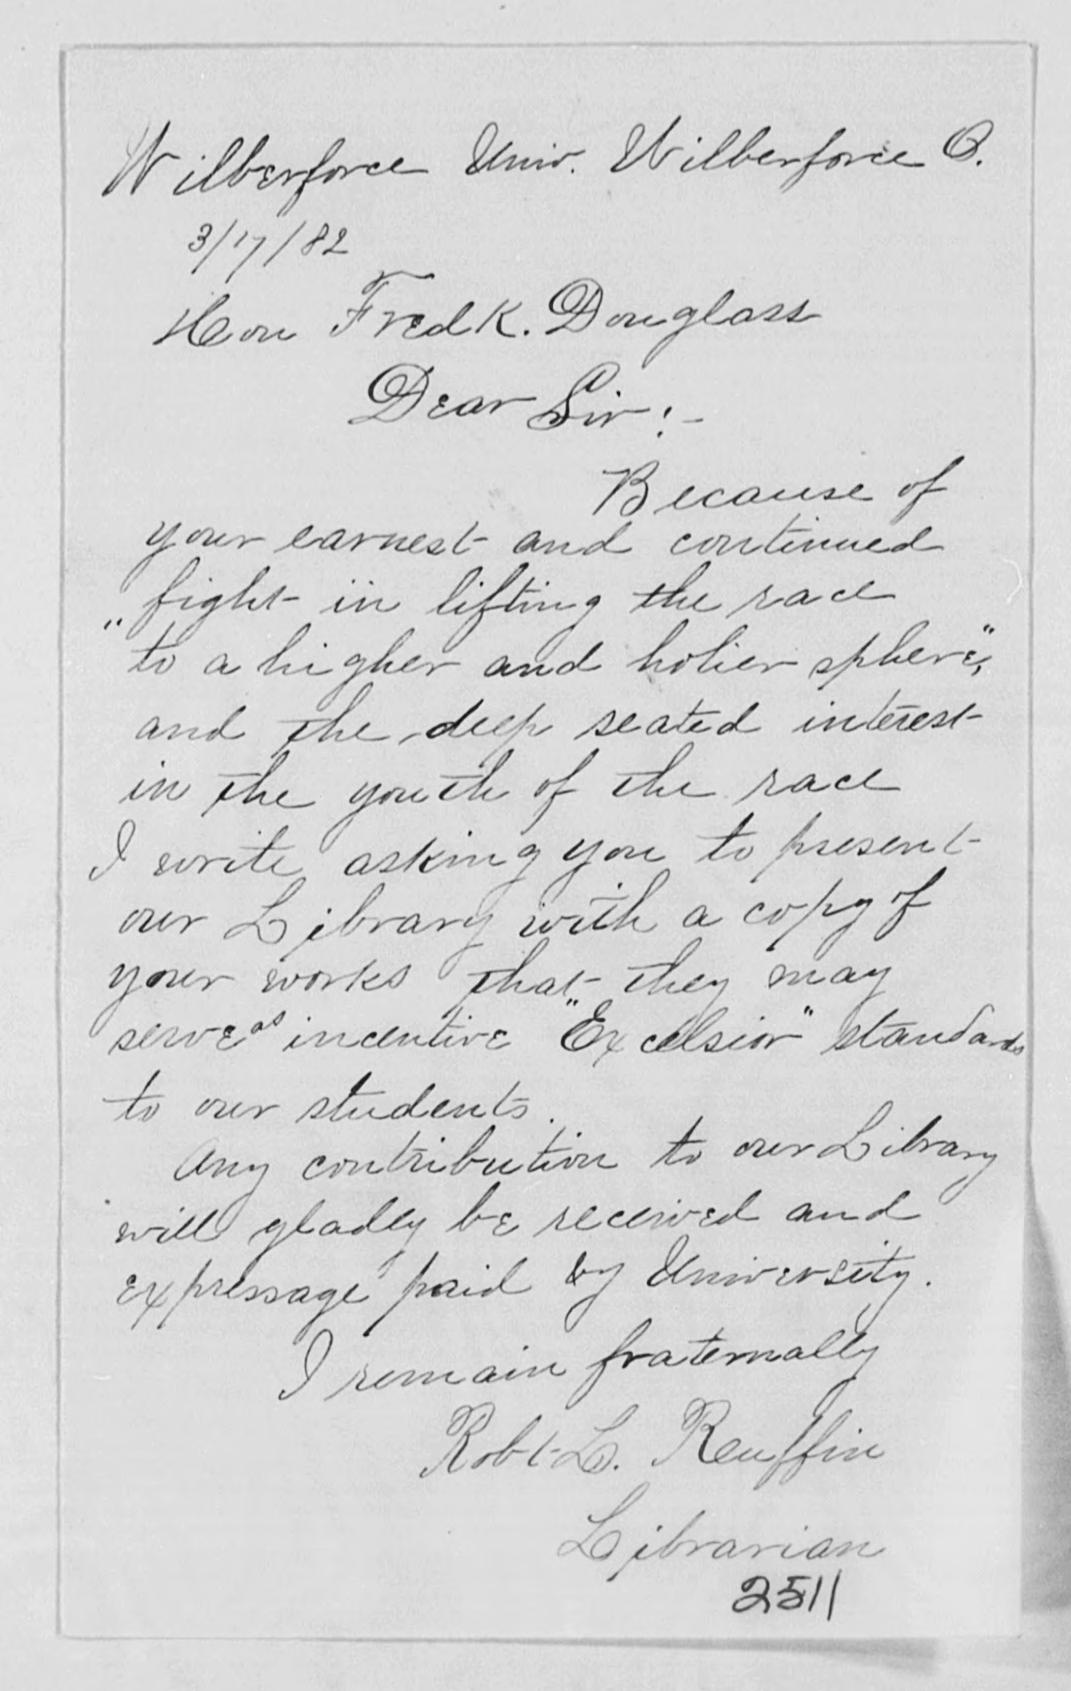 Wilberforce Univ. Wilberforce O.
3/17/82
Hon Fredk. Douglass
Dear Sir:-
Because of
your earnest and continued
fight in lifting the race
"to a higher and holier sphere",
and the deep seated interest
in the youth of the race
I write asking you to present
our Library with a copy of
your works that they may
serve as incentive "Excelsior" standards
to our students.
Any contribution to our Library
will gladly be received and
expressage paid by University.
I remain fraternally
Robt L. Ruffin
Librarian
2511